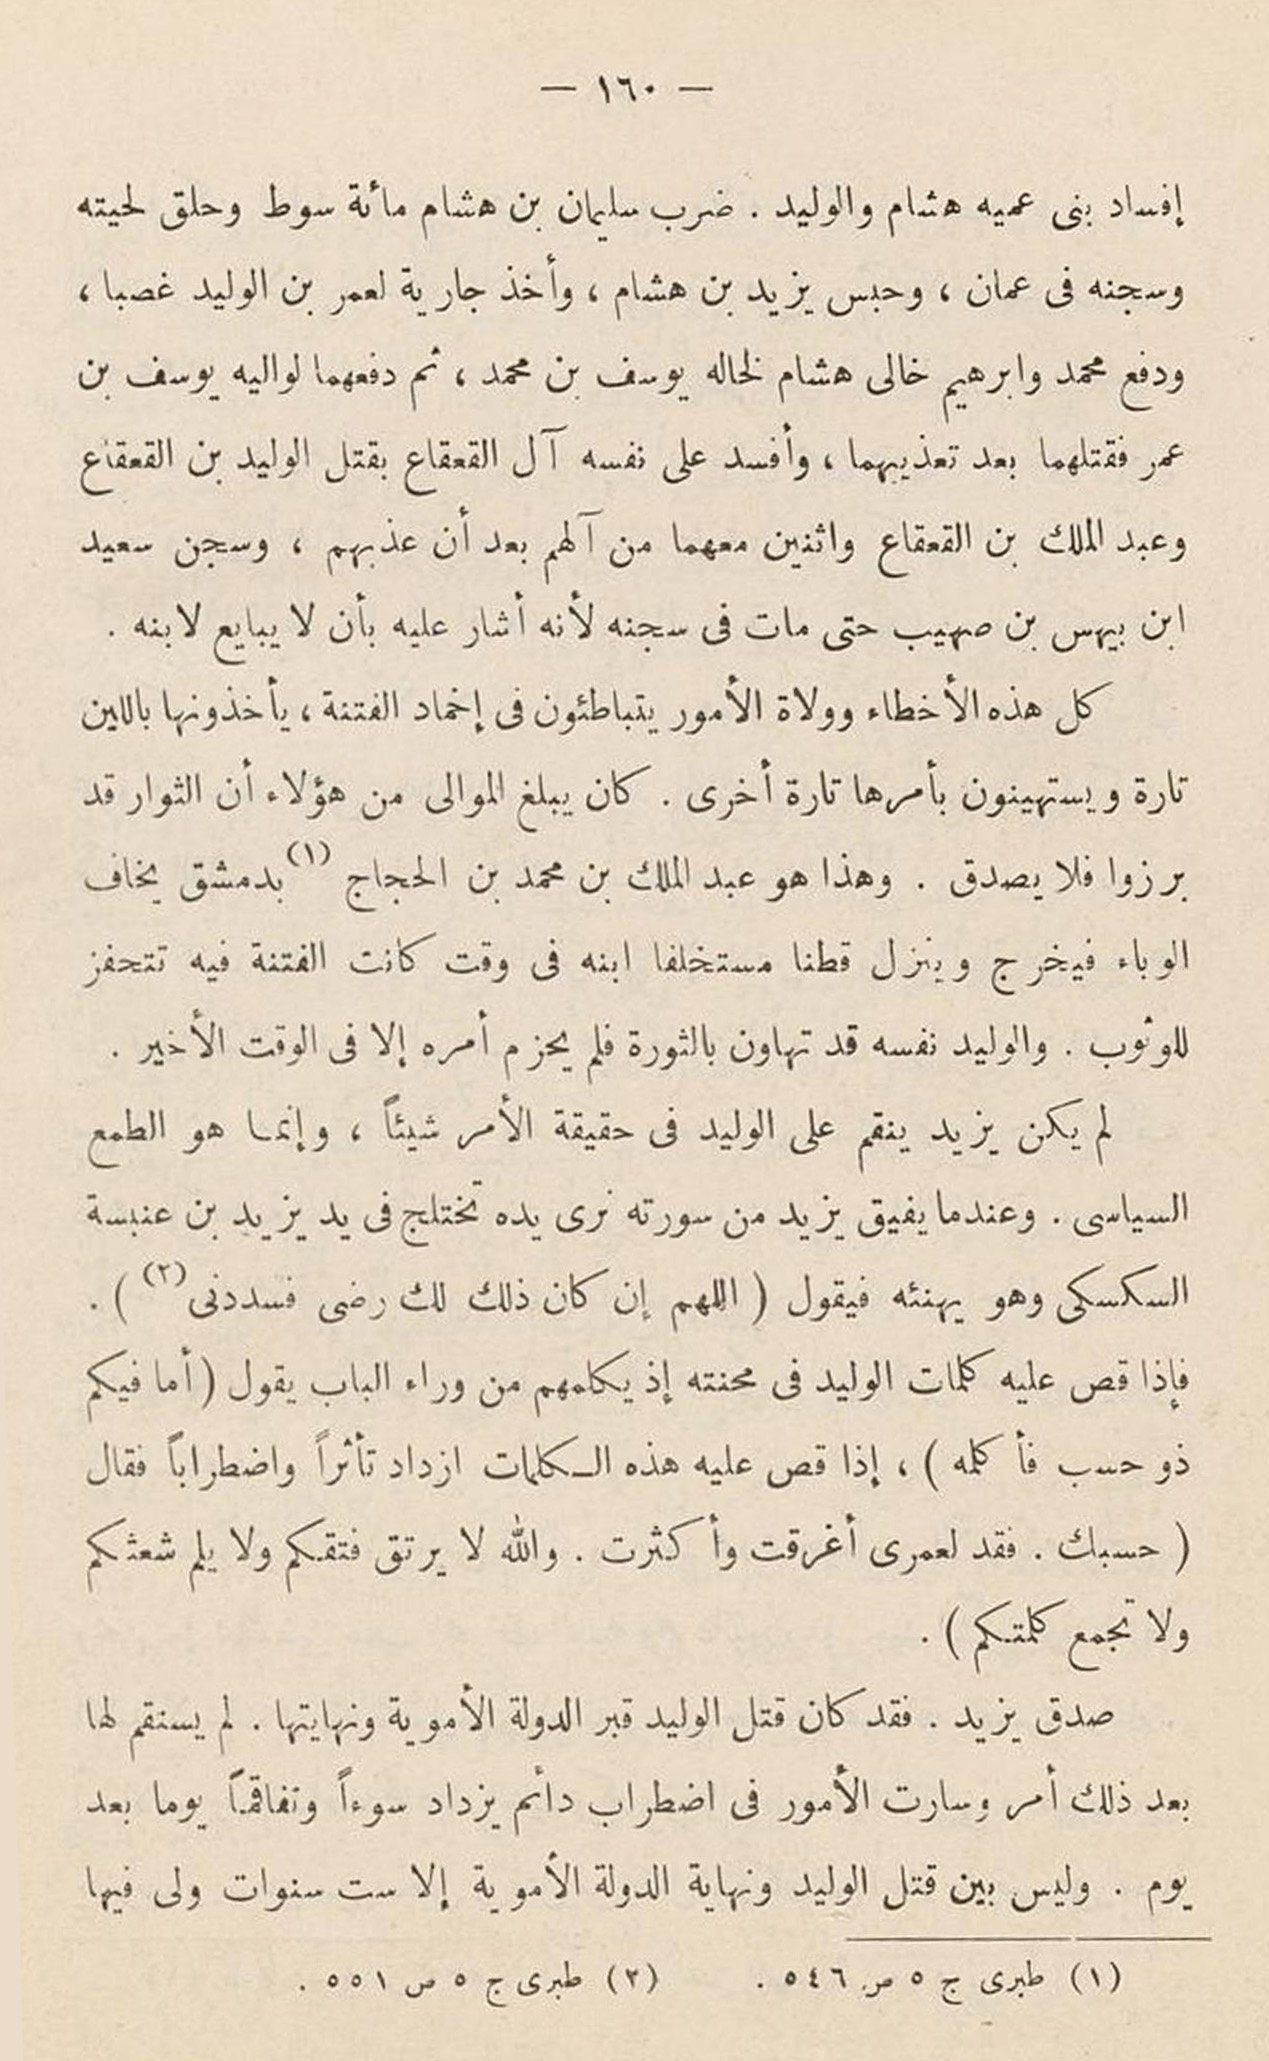 — ١٦٠ —
إفساد بنى عميه هشام والوليد . ضرب سليمان بن هشام مائة سوط وحلق لحيته
وسجنه فى عمان ، وحبس يزيد بن هشام ، وأخذ جارية لعمر بن الوليد غصبا ،
ودفع محمد وابرهيم خالى هشام لخاله يوسف بن محمد ، ثم دفعهما لواليه يوسف بن
عمر فقتلهما بعد تعذيبهما ، وأفسد على نفسه آل القعقاع بقتل الوليد بن القعقاع
وعبد الملك بن القعقاع واثنين معهما من آلهم بعد أن عذبهم ، وسجن سعيد
ابن بيهس بن صهيب حتى مات فى سجنه لأنه أشار عليه بأن لا يبايع لابنه .
كل هذه الأخطاء وولاة الأمور يتباطئون فى إخماد الفتنة ، يأخذونها باللين
تارة ويستهينون بأمرها تارة أخرى . كان يبلغ الموالى من هؤلاء أن الثوار قد
برزوا فلا يصدق . وهذا هو عبد الملك بن محمد بن الحجاج (١) بدمشق يخاف
الوباء فيخرج وينزل قطنا مستخلفا ابنه فى وقت كانت الفتنة فيه تتحفز
للوثوب . والوليد نفسه قد تهاون بالثورة فلم يحزم أمره إلا فى الوقت الأخير .
لم يكن يزيد ينقم على الوليد فى حقيقة الأمر شيئاً ، وإنما هو الطمع
السياسى . وعندما يفيق يزيد من سورته نرى يده تختلج فى يد يزيد بن عنبسة
السكسكى وهو يهنئه فيقول ( اللهم إن كان ذلك لك رضى فسددنى (٢) ) .
فإذا قص عليه كلمات الوليد فى محنته إذ يكلمهم من وراء الباب يقول ( أما فيكم
ذو حسب فأكلمه ) ، إذا قص عليه هذه الكلمات ازداد تأثراً واضطراباً فقال
( حسبك . فقد لعمرى أغرقت وأكثرت . والله لا يرتق فتقكم ولا يلم شعثكم
ولا تجمع كلمتكم ) .
صدق يزيد . فقد كان قتل الوليد قبر الدولة الأموية ونهايتها . لم يستقم لها
بعد ذلك أمر وسارت الأمور فى اضطراب دائم يزداد سوءاً وتفاقماً يوما بعد
يوم . وليس بين قتل الوليد ونهاية الدولة الأموية إلا ست سنوات ولى فيها
(١) طبرى ج ٥ ص ٥٤٦ . (٢) طبرى ج ٥ ص ٥٥١ .